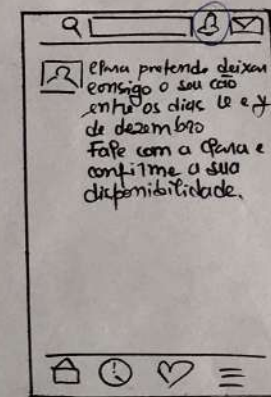 Clara pretende deixar
consigo o seu cão
entre os dias x e y
de dezembro
Fale com a Clara e
confirme a sua
disponibilidade.